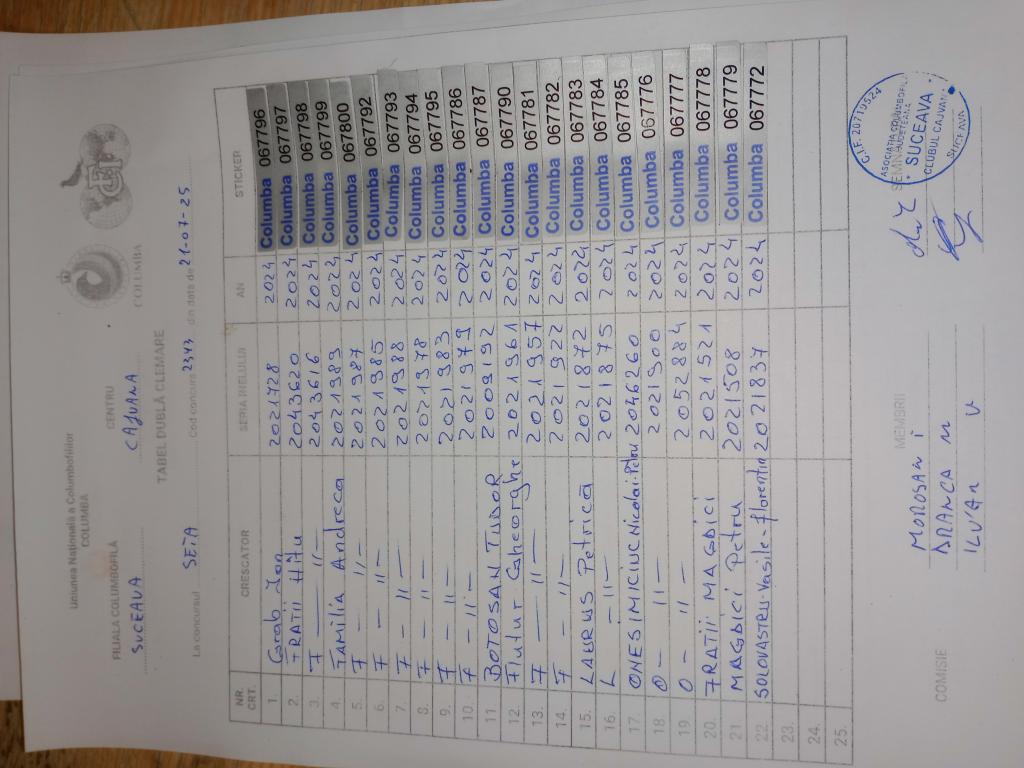 Uniunea Națională a Columbofililor
COLUMBA
FILIALA COLUMBOFILĂ
SUCEAVA
CENTRU
CAJVANA
COLUMBA
TABEL DUBLĂ CLEMARE
La concursul Cod concurs 2343 din data de 21-07-25
NR. CRT. CRESCATOR SERIA INELULUI AN STICKER
1. Carab Ion 2021728 2024 Columba 067796
2. FRATII Hîtu 2043620 2024 Columba 067797
3. F — 11 — 2043616 2024 Columba 067798
4. FAMILIA Andreea 2021989 2024 Columba 067799
5. F - 11 - 2021987 2024 Columba 067800
6. F - 11 - 2021985 2024 Columba 067792
7. F - 11 - 2021988 2024 Columba 067793
8. F - 11 - 2021978 2024 Columba 067794
9. F - 11 - 2021983 2024 Columba 067795
10. F - 11 - 2021979 2024 Columba 067786
11 BOTOSAN TUDOR 2009192 2024 Columba 067787
12. Flutur Gheorghe 2021961 2024 Columba 067790
13. F — 11 — 2021957 2024 Columba 067781
14. F - 11 - 2021922 2024 Columba 067782
15. LAURUS Petrică 2021872 2024 Columba 067783
16. L - 11 - 2021875 2024 Columba 067784
17. ONESIMICIUC Nicolai-Petru 2046260 2024 Columba 067785
18. O - 11 - 2021900 2024 Columba 067776
19. O - 11 - 2052884 2024 Columba 067777
20. FRATII MAGDICI 2021521 2024 Columba 067778
21 MAGDICI Petru 2021508 2024 Columba 067779
22. SOLOVASTRU Vasile-florentin 2021837 2024 Columba 067772
23.
24.
25.
COMISIE
MEMBRII
MOROSAN I
ARANCA M
V
C.I.F. 20710524
SUCEAVA
CLUBUL CAJVANA
SUCEAVA